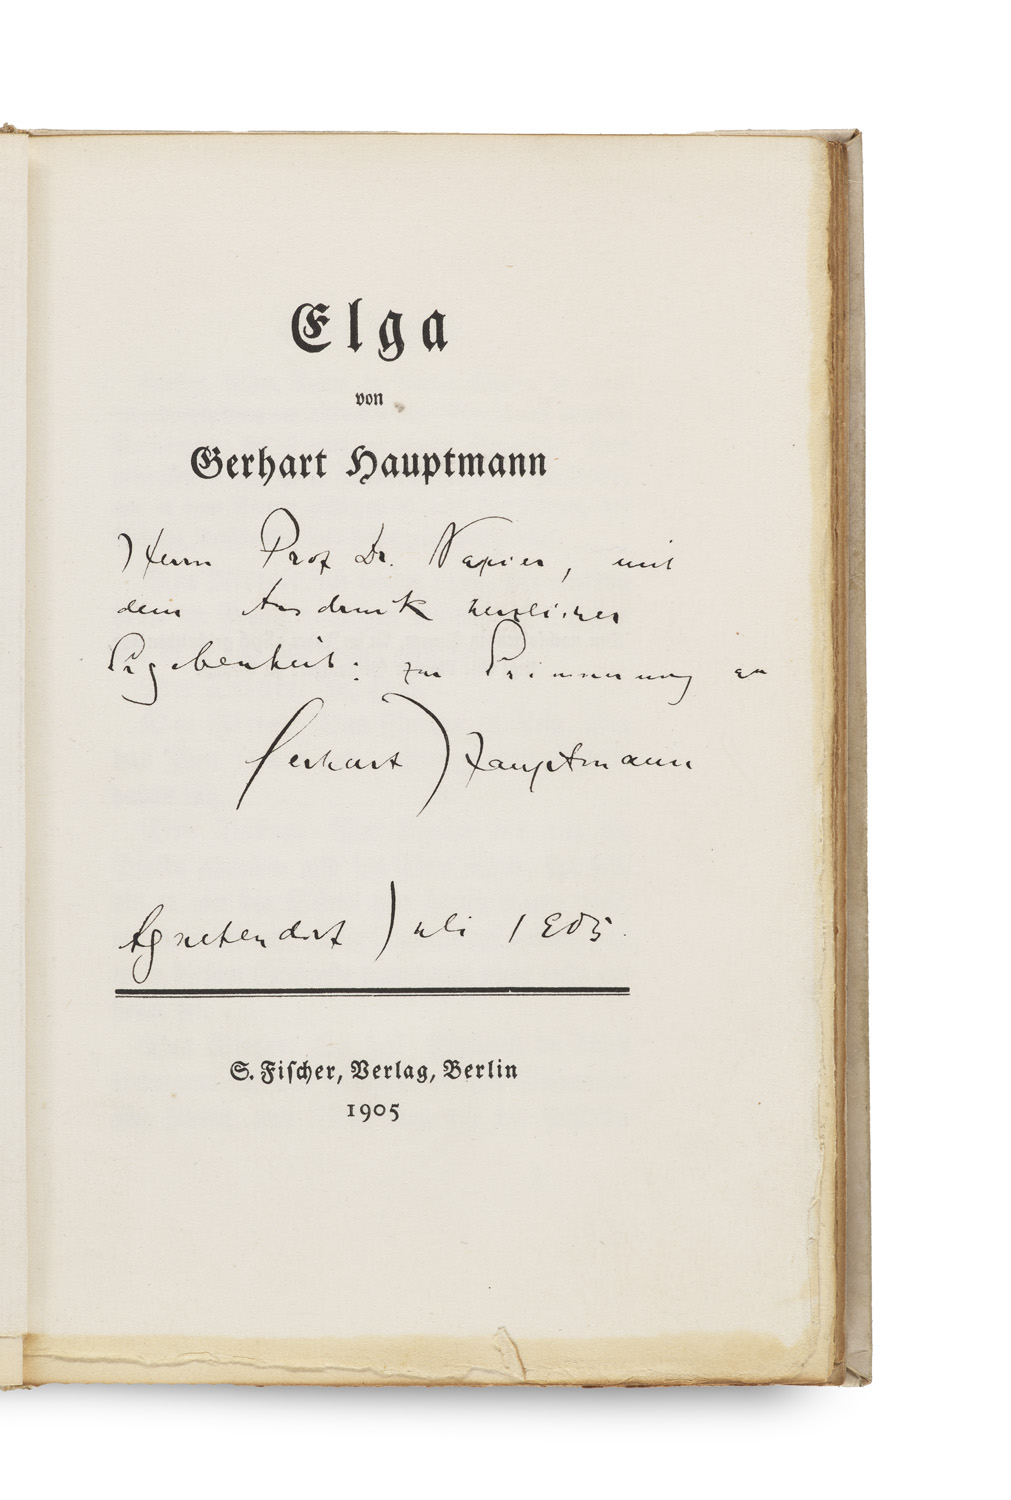 Elga
von
Gerhart Hauptmann
Herrn Prof Dr. Napier, mit
dem Ausdruck herzlicher
Ergebenheit: zur Erinnerung an
Gerhart Hauptmann
Agnetendorf Juli 1905.
S. Fiſcher, Verlag, Berlin
1905